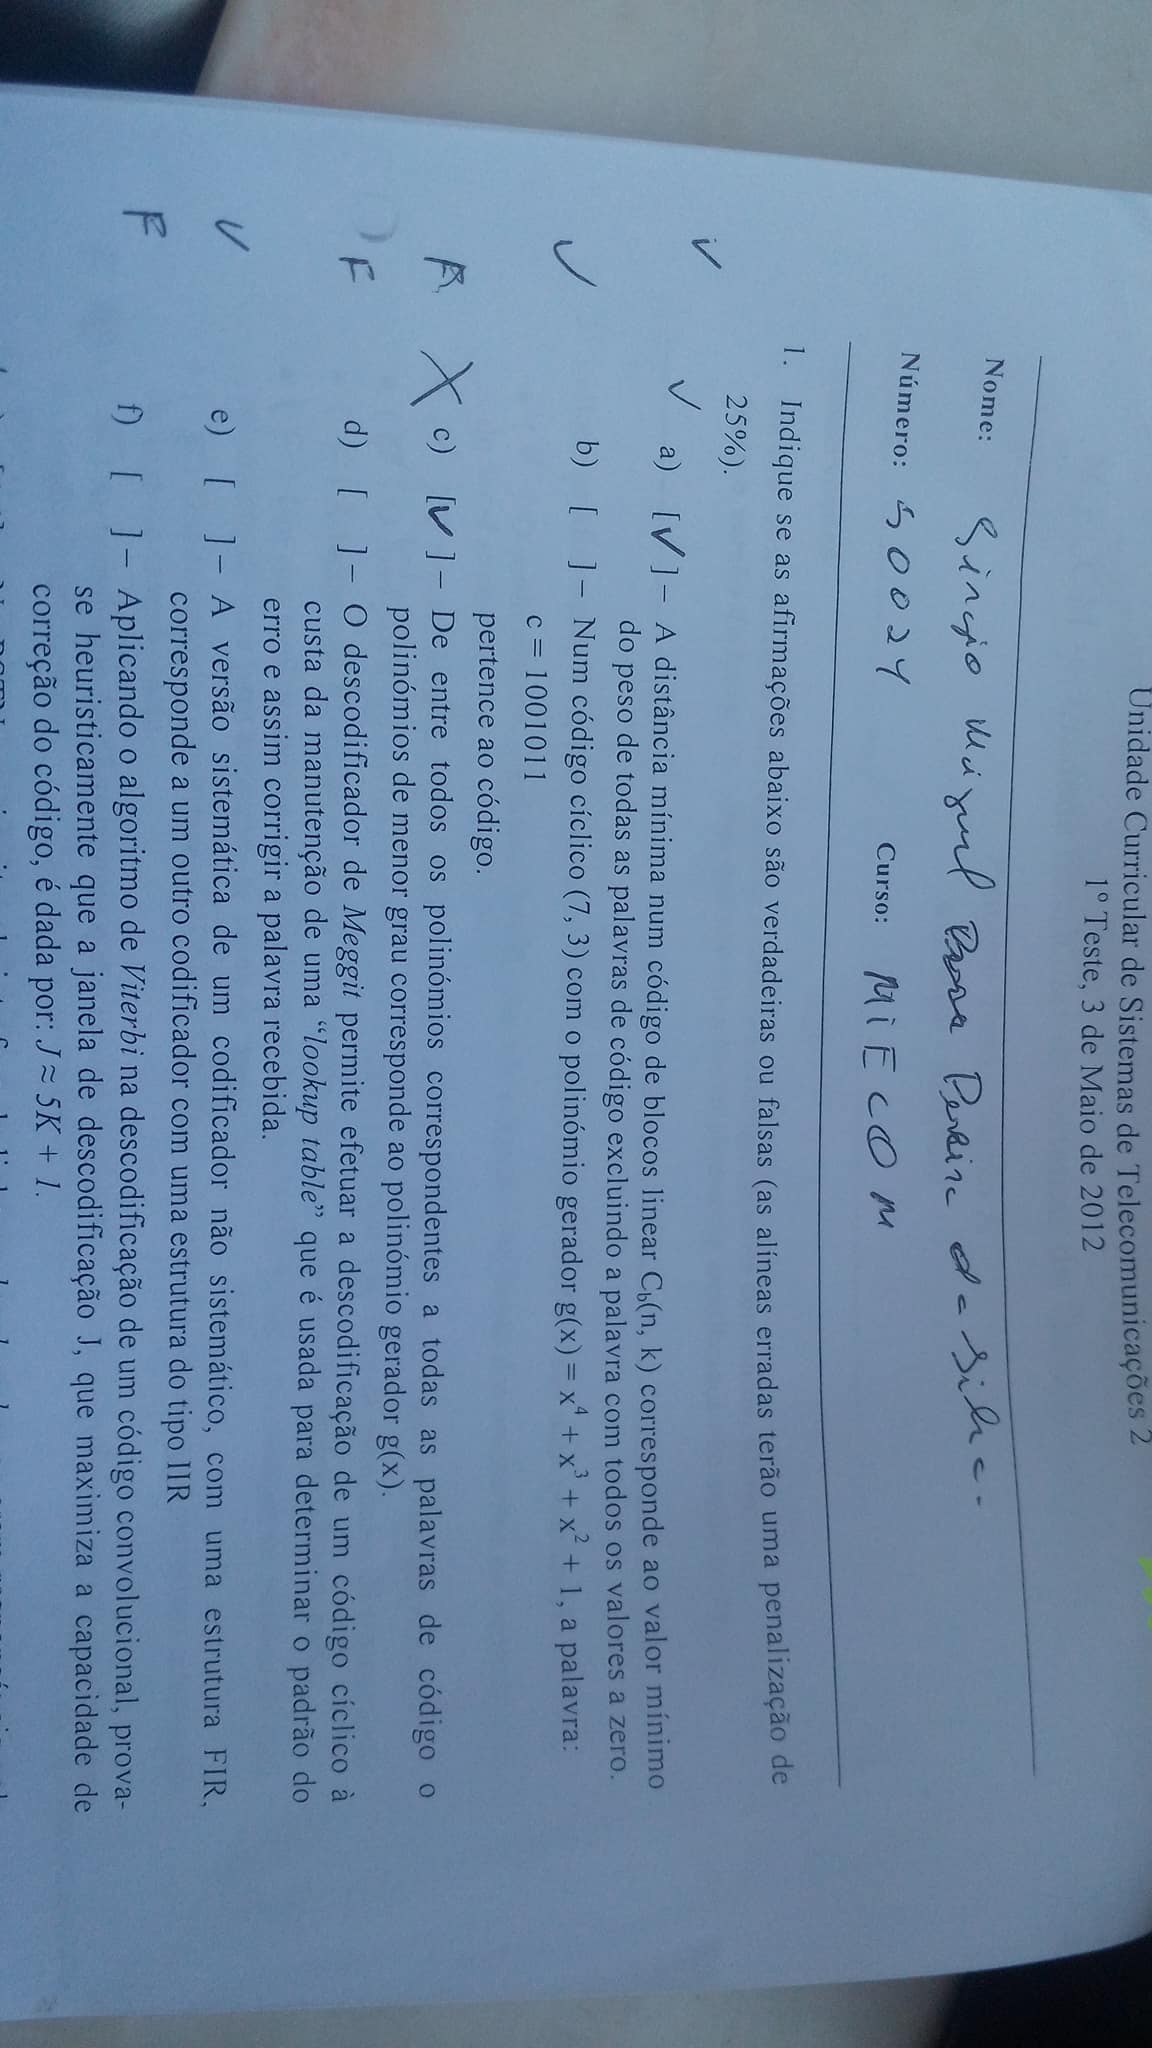 Unidade Curricular de Sistemas de Telecomunicações 2
1º Teste, 3 de Maio de 2012
Nome: Sérgio Miguel Pereira da Silva.
Número: 50024 Curso: MIECOM
1. Indique se as afirmações abaixo são verdadeiras ou falsas (as alíneas erradas terão uma penalização de
25%).
✓ ✓ a) [✓] – A distância mínima num código de blocos linear Cb(n, k) corresponde ao valor mínimo
do peso de todas as palavras de código excluindo a palavra com todos os valores a zero.
✓ b) [ ] – Num código cíclico (7, 3) com o polinómio gerador g(x) = x⁴ + x³ + x² + 1, a palavra:
c = 1001011
pertence ao código.
F X c) [✓] – De entre todos os polinómios correspondentes a todas as palavras de código o
polinómios de menor grau corresponde ao polinómio gerador g(x).
F d) [ ] – O descodificador de Meggit permite efetuar a descodificação de um código cíclico à
custa da manutenção de uma “lookup table” que é usada para determinar o padrão do
erro e assim corrigir a palavra recebida.
✓ e) [ ] – A versão sistemática de um codificador não sistemático, com uma estrutura FIR,
corresponde a um outro codificador com uma estrutura do tipo IIR
F f) [ ] – Aplicando o algoritmo de Viterbi na descodificação de um código convolucional, prova-
se heuristicamente que a janela de descodificação J, que maximiza a capacidade de
correção do código, é dada por: J ≈ 5K + 1.